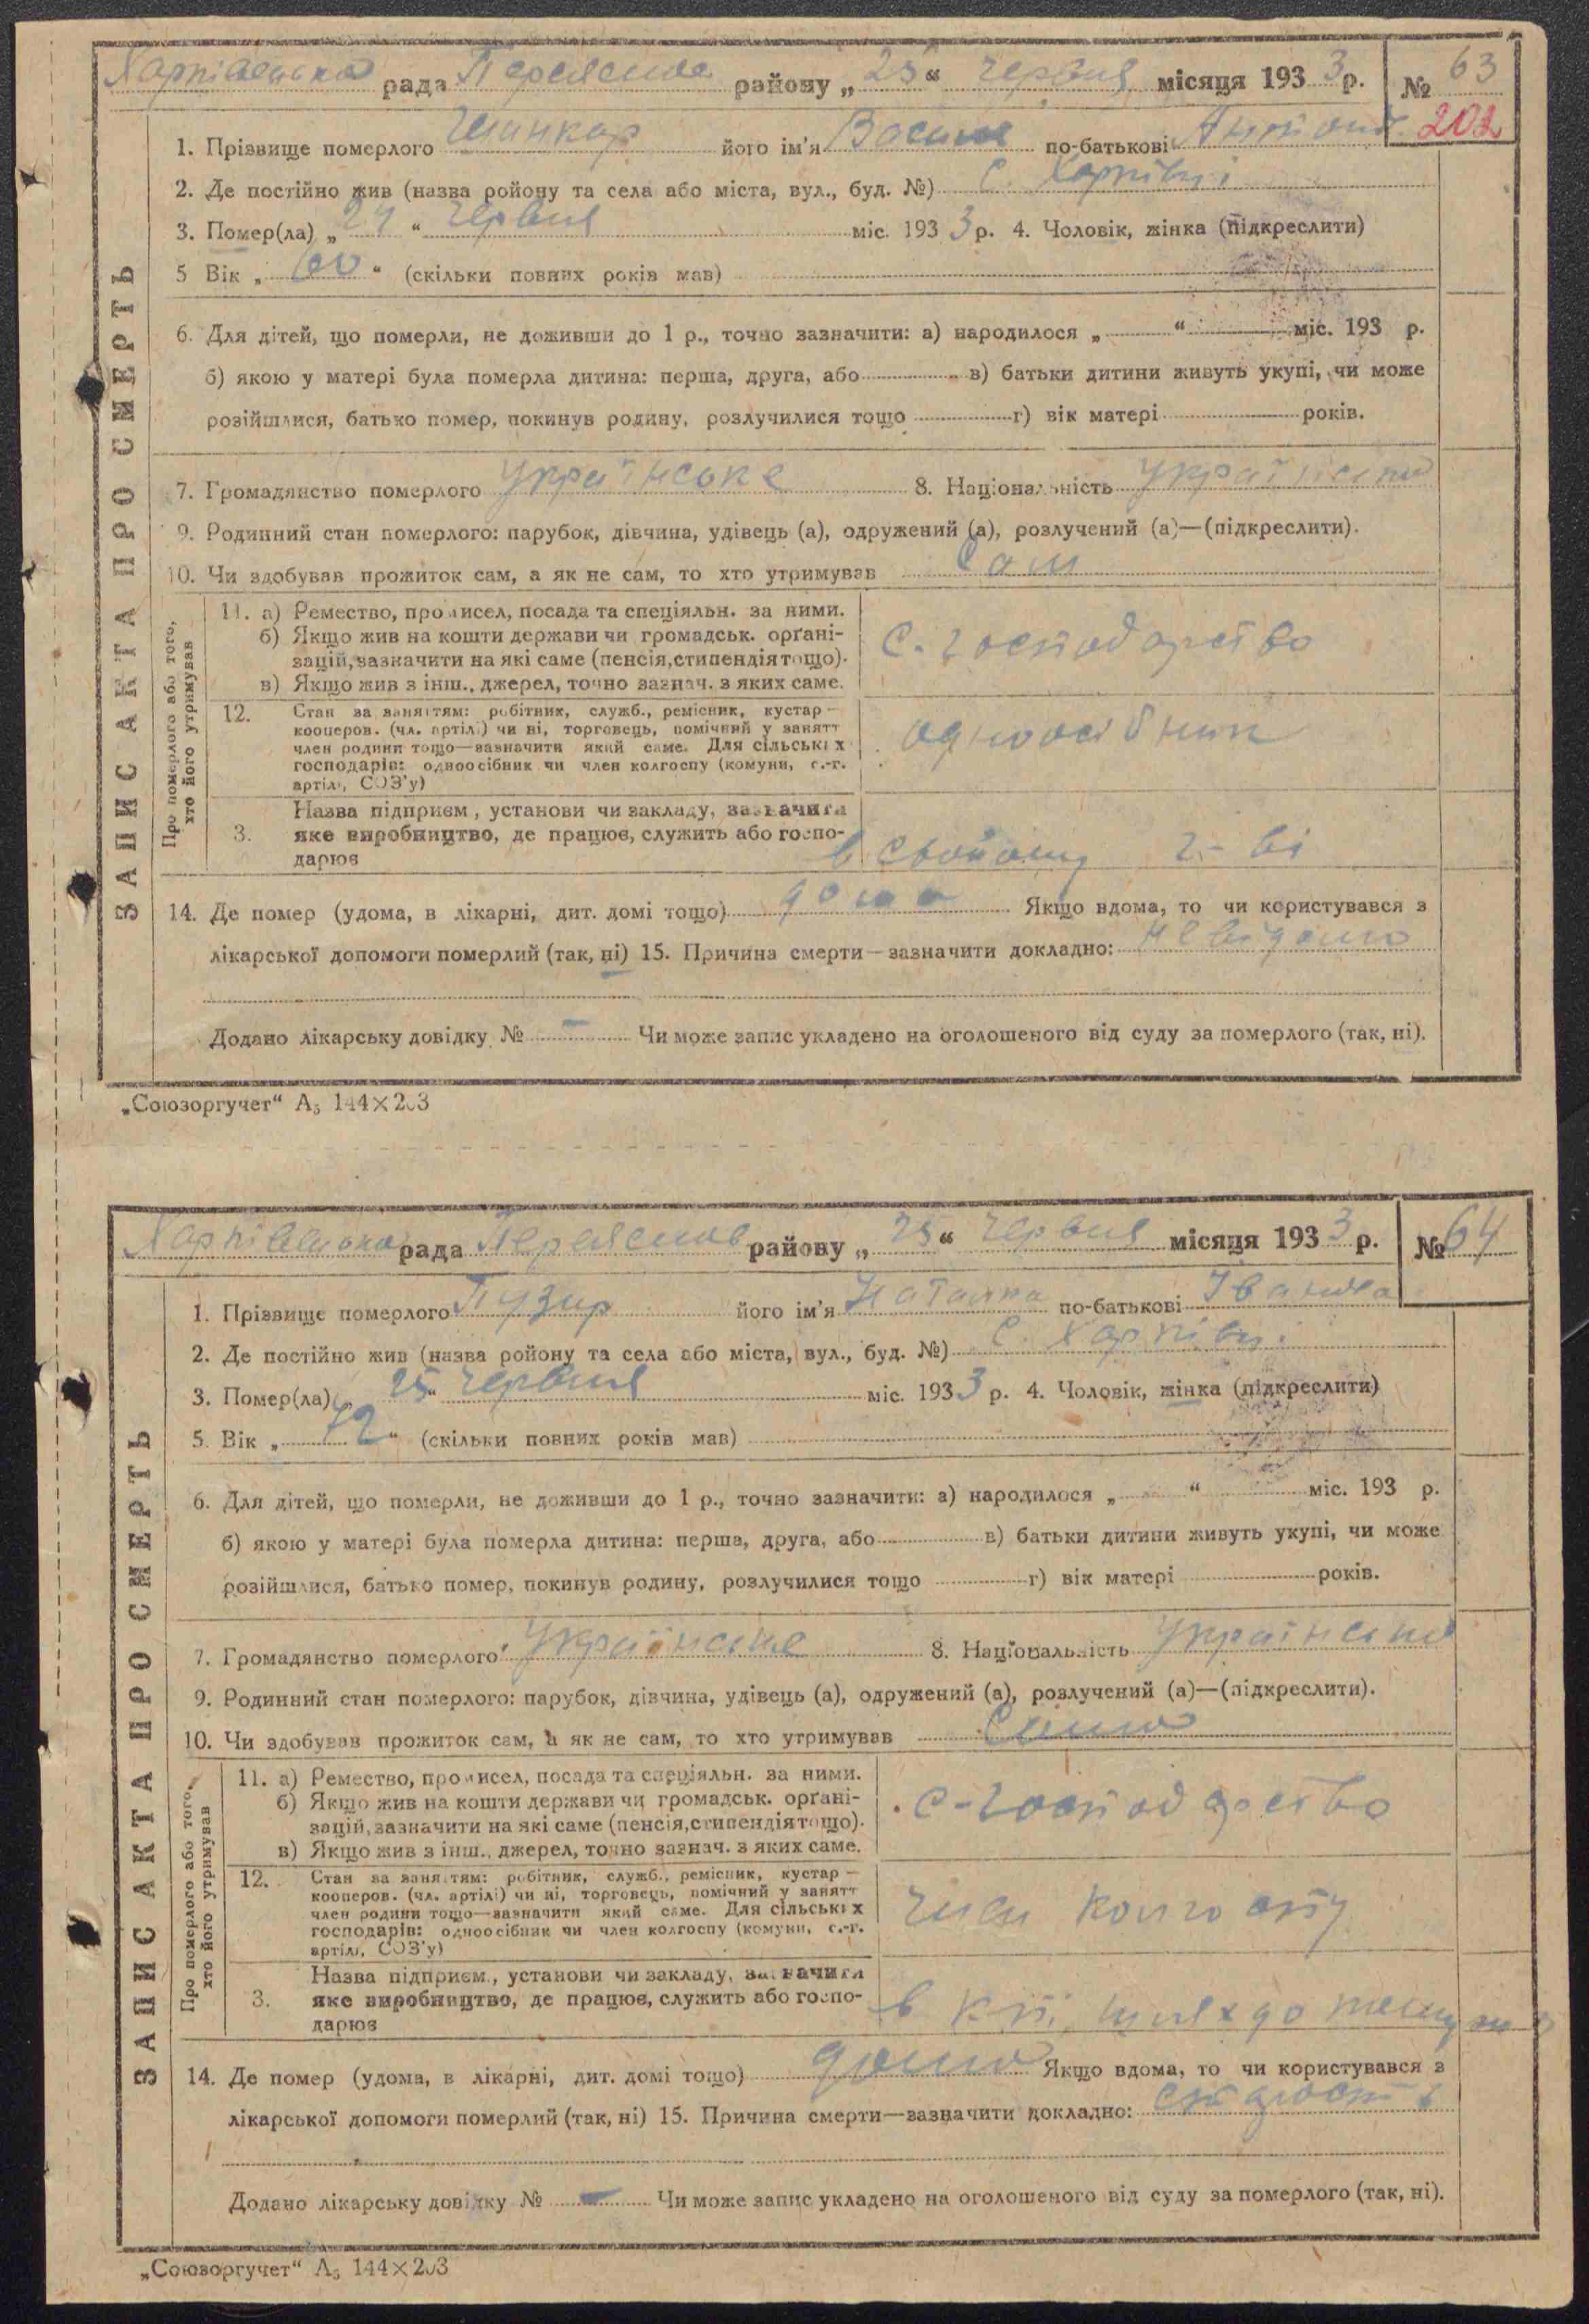 Харківецька рада Переяслов району „25“ червня місяця 1933 р. № 63
202
ЗАПИС АКТА ПРО СМЕРТЬ
1. Прізвище померлого Шинкар його ім'я Василь по-батькові Антонов.
2. Де постійно жив (назва ройону та села або міста, вул., буд. №) С. Харківці
3. Помер(ла) „24“ червня міс. 1933 р. 4. Чоловік, жінка (підкреслити)
5 Вік „60“ (скільки повних років мав)
6. Для дітей, що померли, не доживши до 1 р., точно зазначити: а) народилося „ “ міс. 193 р.
б) якою у матері була померла дитина: перша, друга, або в) батьки дитини живуть укупі, чи може
розійшлися, батько помер, покинув родину, розлучилися тощо г) вік матері років.
7. Громадянство померлого Українське 8. Національність Українська
9. Родинний стан померлого: парубок, дівчина, удівець (а), одружений (а), розлучений (а)—(підкреслити).
10. Чи здобував прожиток сам, а як не сам, то хто утримував Сам
Про померлого або того, хто його утримував
11. а) Ремество, промисел, посада та спеціяльн. за ними.
б) Якщо жив на кошти держави чи громадськ. орґані-
зацій, зазначити на які саме (пенсія, стипендія тощо).
в) Якщо жив з інш., джерел, точно зазнач. з яких саме.
С. господарство
12. Стан за заняттям: робітник, служб., ремісник, кустар —
кооперов. (чл. артілі) чи ні, торговець, помічний у занятт
член родини тощо—зазначити який саме. Для сільських
господарів: одноосібник чи член колгоспу (комуни, с.-г.
артілі, СОЗ'у)
одноосібник
3. Назва підприєм., установи чи закладу, зазначити
яке виробництво, де працює, служить або госпо-
дарює
в свойому г-ві
14. Де помер (удома, в лікарні, дит. домі тощо) дома Якщо вдома, то чи користувався з
лікарської допомоги померлий (так, ні) 15. Причина смерти—зазначити докладно: невідомо
Додано лікарську довідку № — Чи може запис укладено на оголошеного від суду за померлого (так, ні).
„Союзоргучет“ А5 144×203
Харківецька рада Переяслов району „25“ червня місяця 1933 р. № 64
ЗАПИС АКТА ПРО СМЕРТЬ
1. Прізвище померлого Пузир його ім'я Наталка по-батькові Іванова
2. Де постійно жив (назва ройону та села або міста, вул., буд. №) С. Харківці
3. Помер(ла) „25“ червня міс. 1933 р. 4. Чоловік, жінка (підкреслити)
5. Вік „72“ (скільки повних років мав)
6. Для дітей, що померли, не доживши до 1 р., точно зазначити: а) народилося „ “ міс. 193 р.
б) якою у матері була померла дитина: перша, друга, або в) батьки дитини живуть укупі, чи може
розійшлися, батько помер, покинув родину, розлучилися тощо г) вік матері років.
7. Громадянство померлого Українське 8. Національність Українська
9. Родинний стан померлого: парубок, дівчина, удівець (а), одружений (а), розлучений (а)—(підкреслити).
10. Чи здобував прожиток сам, а як не сам, то хто утримував Сама
Про померлого або того, хто його утримував
11. а) Ремество, промисел, посада та спеціяльн. за ними.
б) Якщо жив на кошти держави чи громадськ. орґані-
зацій, зазначити на які саме (пенсія, стипендія тощо).
в) Якщо жив з інш., джерел, точно зазнач. з яких саме.
с-господарство
12. Стан за заняттям: робітник, служб., ремісник, кустар —
кооперов. (чл. артілі) чи ні, торговець, помічний у занятт
член родини тощо—зазначити який саме. Для сільських
господарів: одноосібник чи член колгоспу (комуни, с.-г.
артілі, СОЗ'у)
член колгоспу
3. Назва підприєм., установи чи закладу, зазначити
яке виробництво, де працює, служить або госпо-
дарює
в к-пі шлях до
14. Де помер (удома, в лікарні, дит. домі тощо) дома Якщо вдома, то чи користувався з
лікарської допомоги померлий (так, ні) 15. Причина смерти—зазначити докладно: старость
Додано лікарську довідку № — Чи може запис укладено на оголошеного від суду за померлого (так, ні).
„Союзоргучет“ А5 144×203